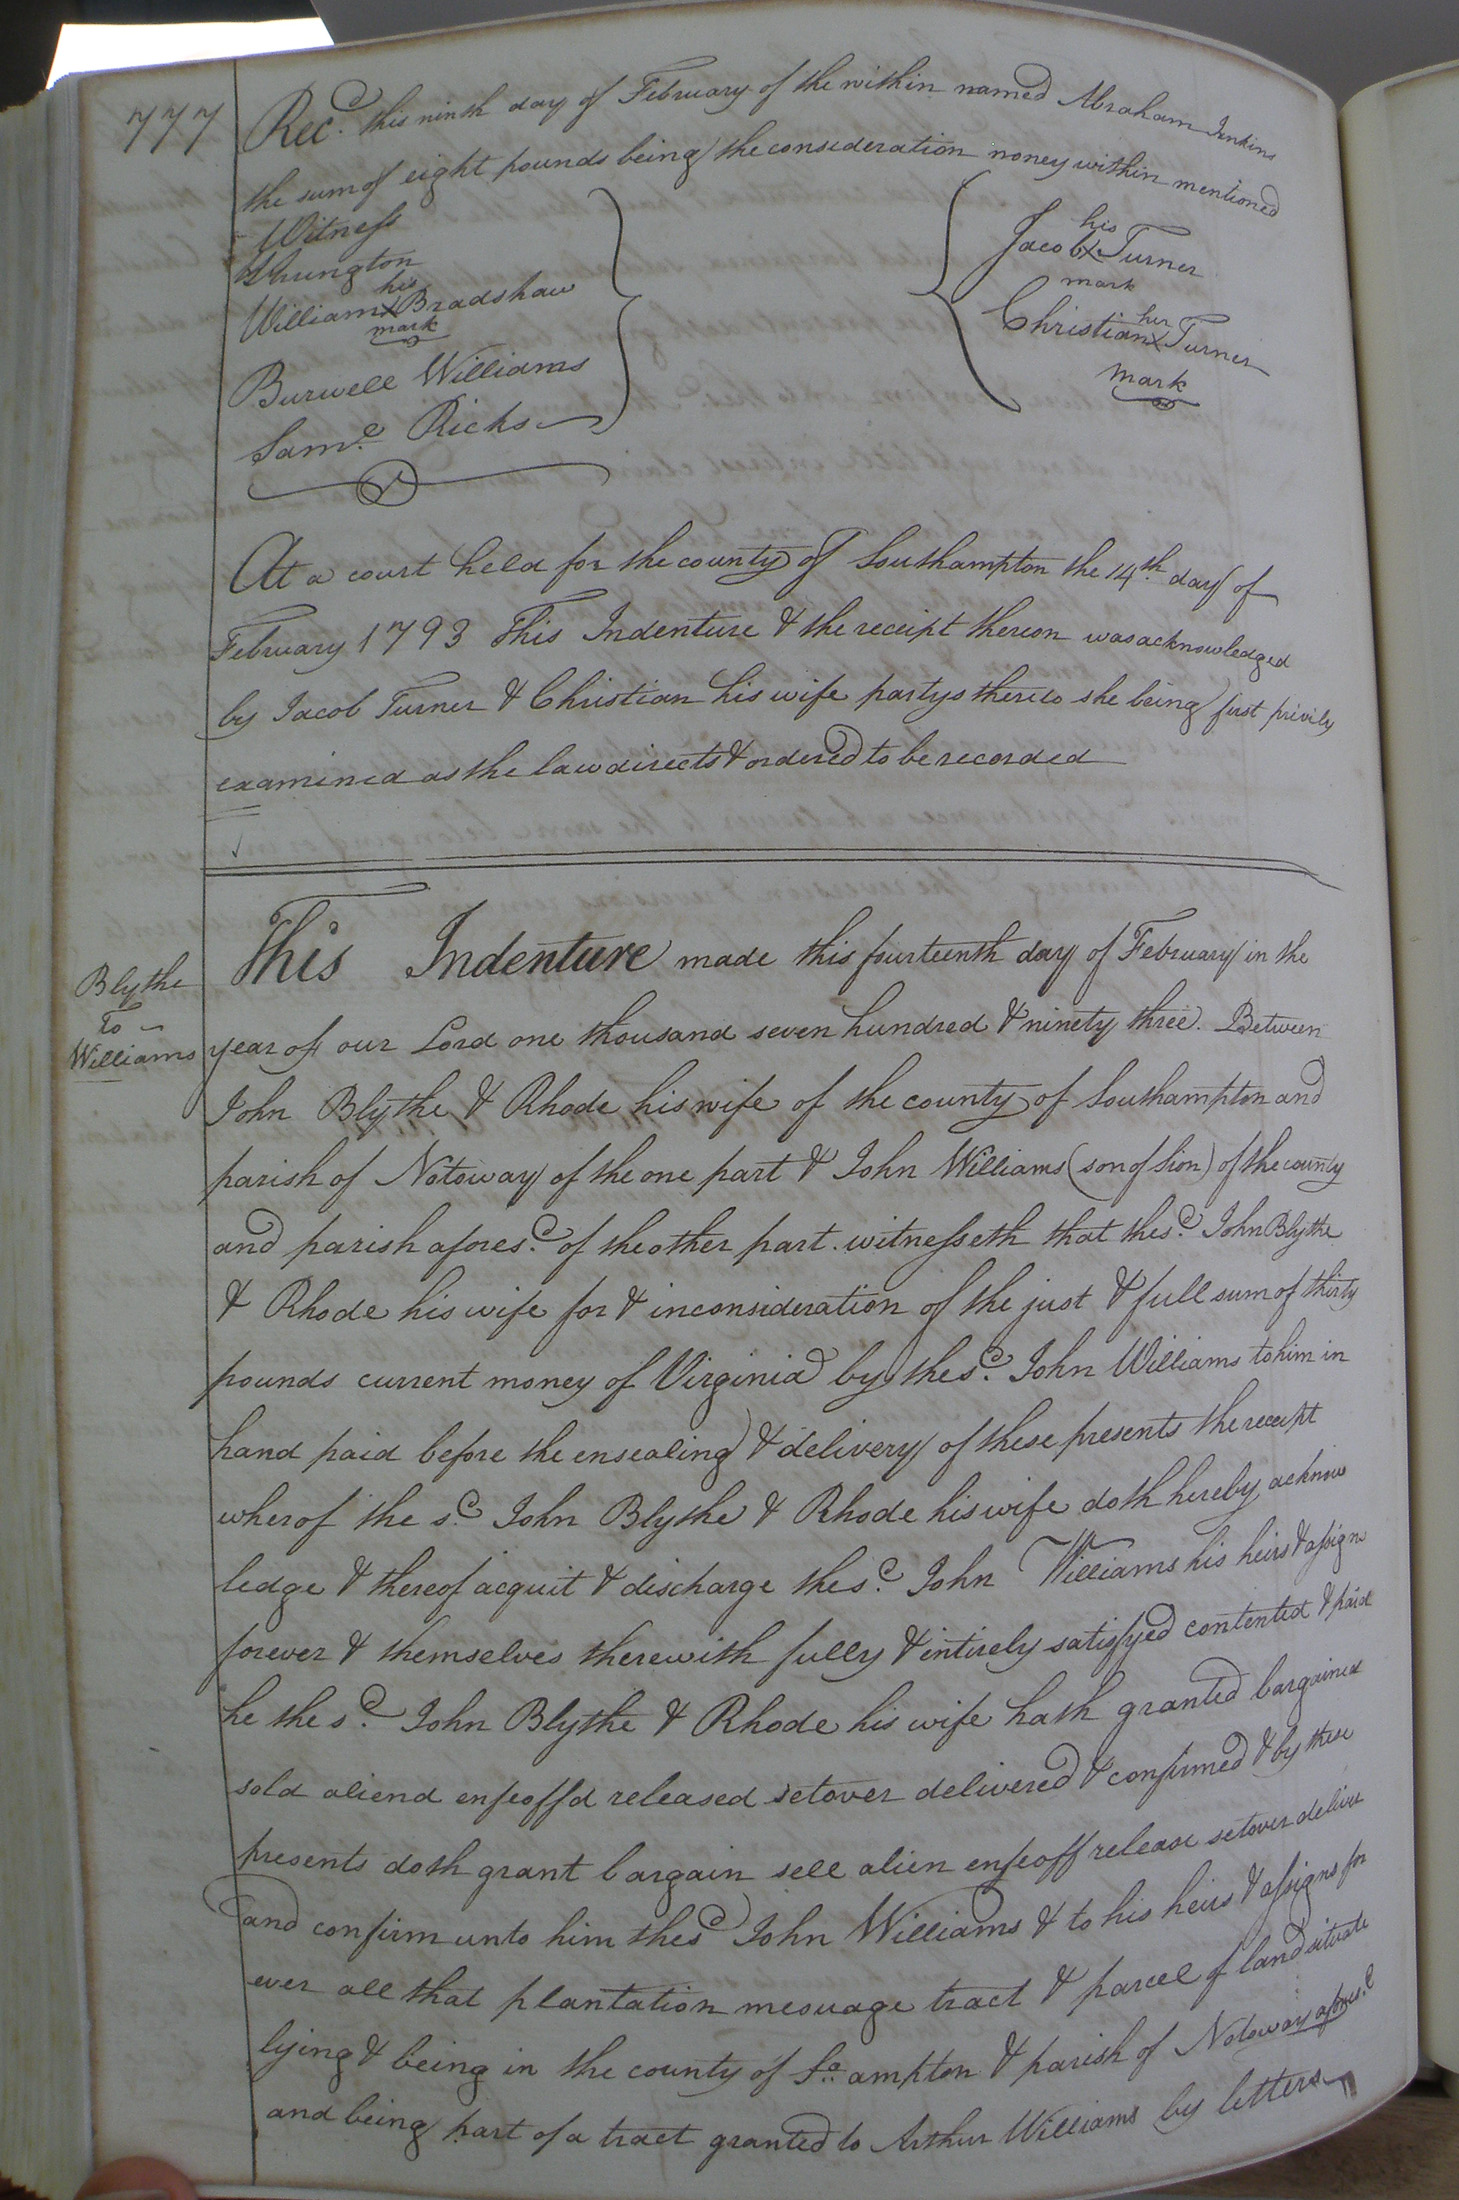 777
Rec.d this ninth day of February of the within named Abraham Jenkins
the sum of eight pounds being the consideration money within mentioned
Witness
his
Jacob X Turner
mark
her
Christian X Turner
mark
his
William X Bradshaw
mark
Burwell Williams
Sam.l Ricks
At a court held for the county of Southampton the 14th day of
February 1793 This Indenture & the receipt thereon was acknowledged
by Jacob Turner & Christian his wife partys thereto she being first privily
examined as the law directs & ordered to be recorded
Blythe
To
Williams
This Indenture made this fourteenth day of February in the
year of our Lord one thousand seven hundred & ninety three. Between
John Blythe & Rhode his wife of the county of Southampton and
parish of Notoway of the one part & John Williams (son of Sion) of the county
and parish afores.d of the other part. witnesseth that the s.d John Blythe
& Rhode his wife for & in consideration of the just & full sum of thirty
pounds current money of Virginia by the s.d John Williams to him in
hand paid before the ensealing & delivery of these presents the receipt
wherof the s.d John Blythe & Rhode his wife doth hereby acknow
ledge & thereof acquit & discharge the s.d John Williams his heirs & assigns
forever & themselves therewith fully & intirely satisfyed contented & paid
he the s.d John Blythe & Rhode his wife hath granted bargained
sold aliend enfeoffd released setover delivered & confirmed & by these
presents doth grant bargain sell alien enfeoff release setover deliver
and confirm unto him the sd John Williams & to his heirs & assigns for
ever all that plantation mesuage tract & parcel of land situate
lying & being in the county of So.ampton & parish of Notoway afores.d
and being part of a tract granted to Arthur Williams by letters